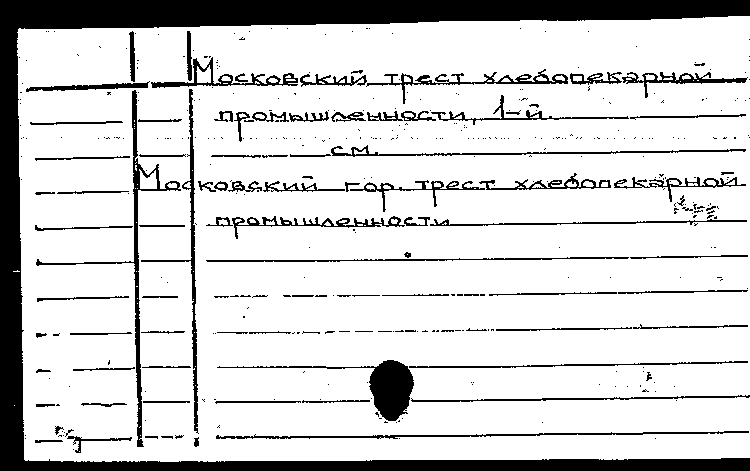 Московский трест хлебопекарной
промышленности, 1-й.
см.
Московский гор. трест хлебопекарной
промышленности